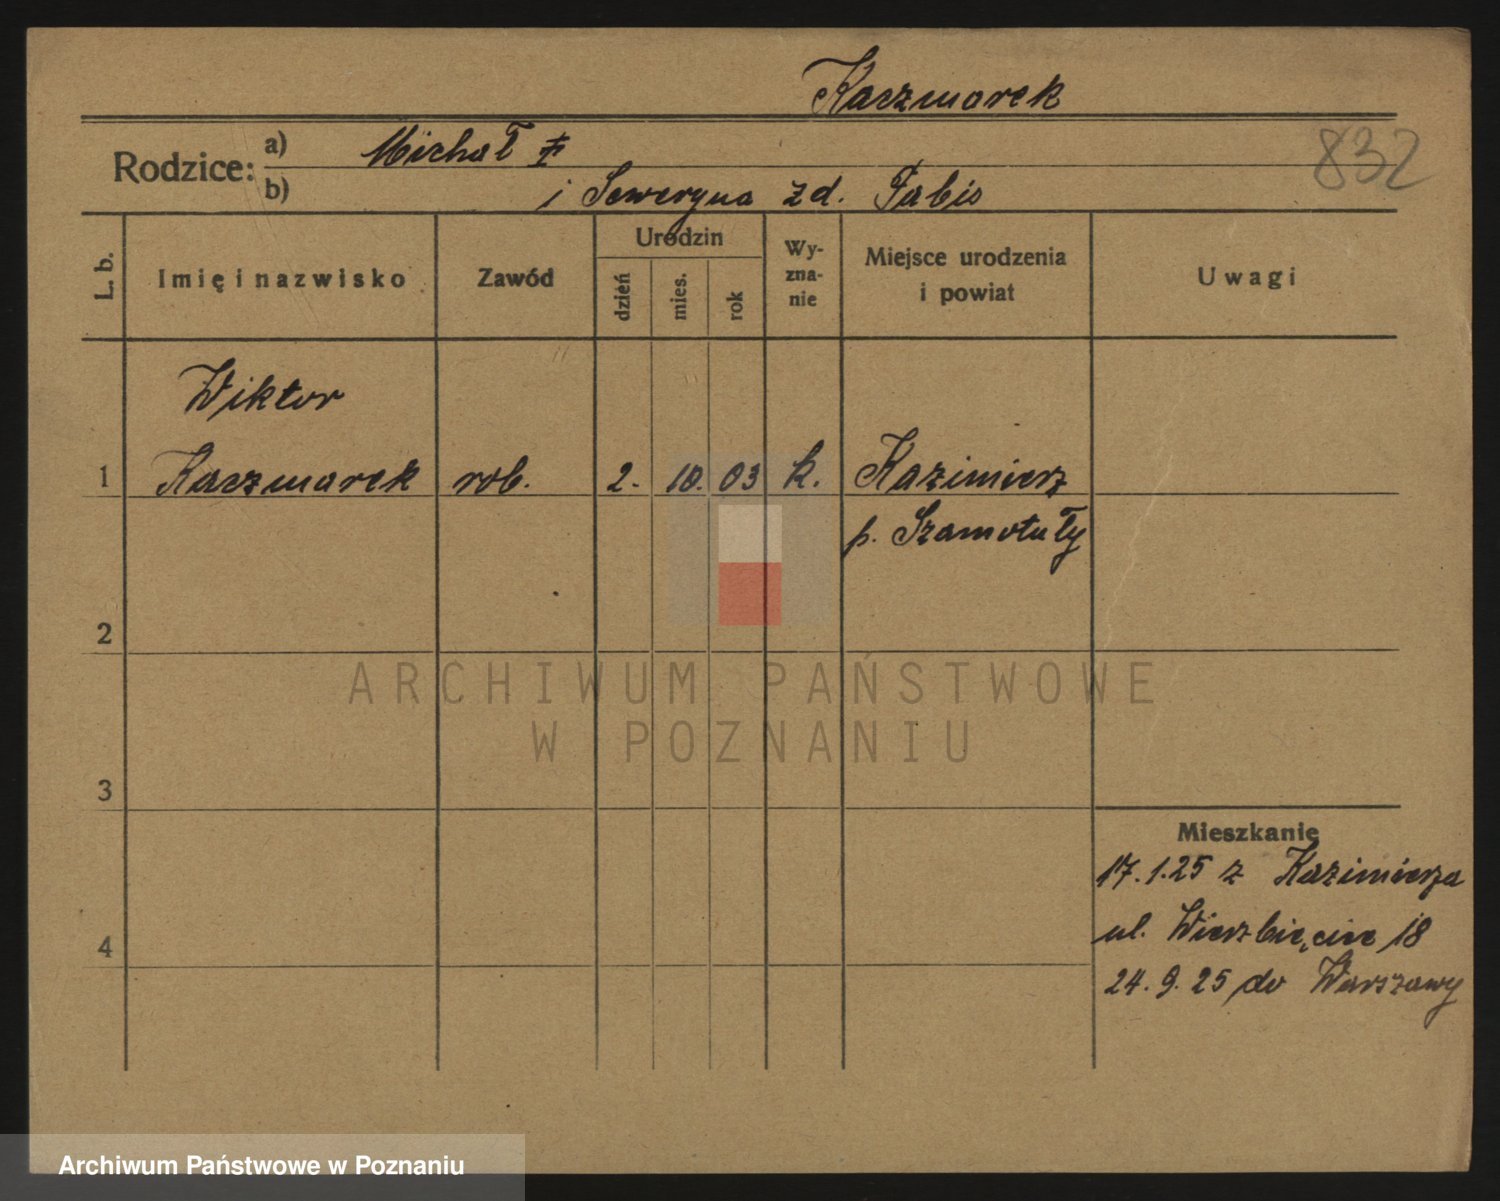 Kaczmarek
832
Rodzice: a) Michał ‡
b) i Seweryna zd. Fabis
L. b.
Imię i nazwisko
Zawód
Urodzin
dzień
mies.
rok
Wy-
zna-
nie
Miejsce urodzenia
i powiat
Uwagi
Wiktor
1 Kaczmarek rob. 2. 10. 03 k. Kazimierz
p. Szamotuły
2
ARCHIWUM PAŃSTWOWE
W POZNANIU
3
Mieszkanie
17.1.25 z Kazimierza
ul. Wierzbięcice 18
4
24.9.25 do Warszawy
Archiwum Państwowe w Poznaniu